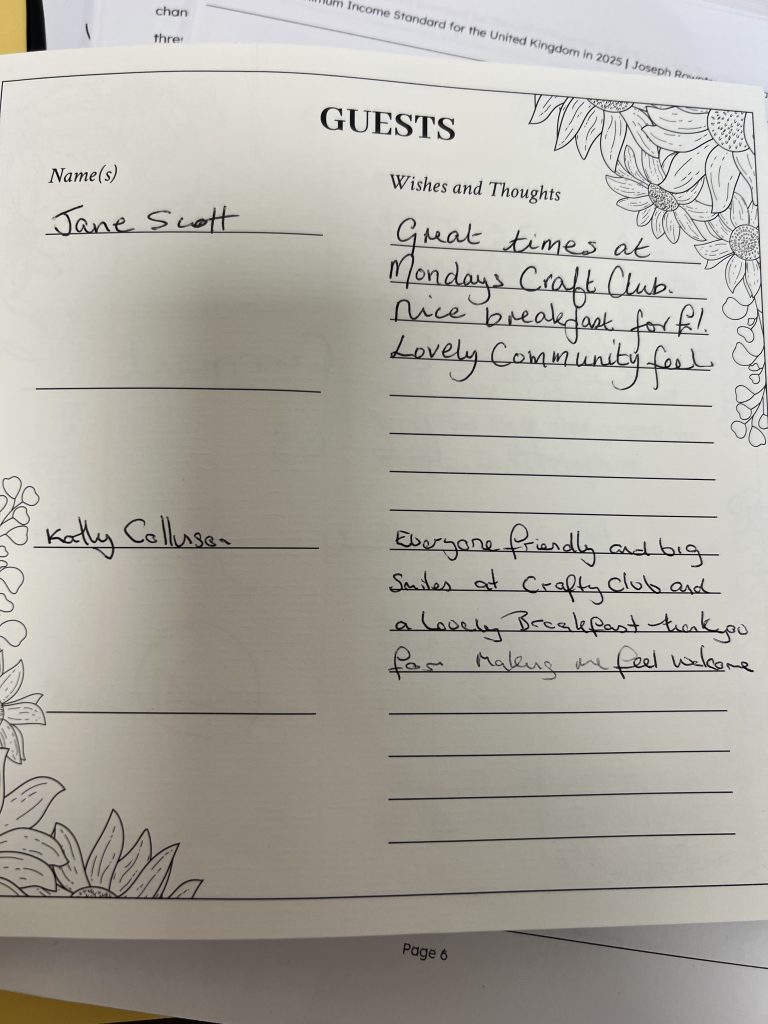 chan
thre
mum Income Standard for the United Kingdom in 2025 | Joseph Rown
GUESTS
Name(s)
Wishes and Thoughts
Jane Scott
Great times at
Mondays Craft Club.
Nice breakfast for £1.
Lovely Community feel
Kathy
Everyone friendly and big
Smiles at Crafty Club and
a lovely Breakfast thankyou
for Making me feel welcome
Page 6